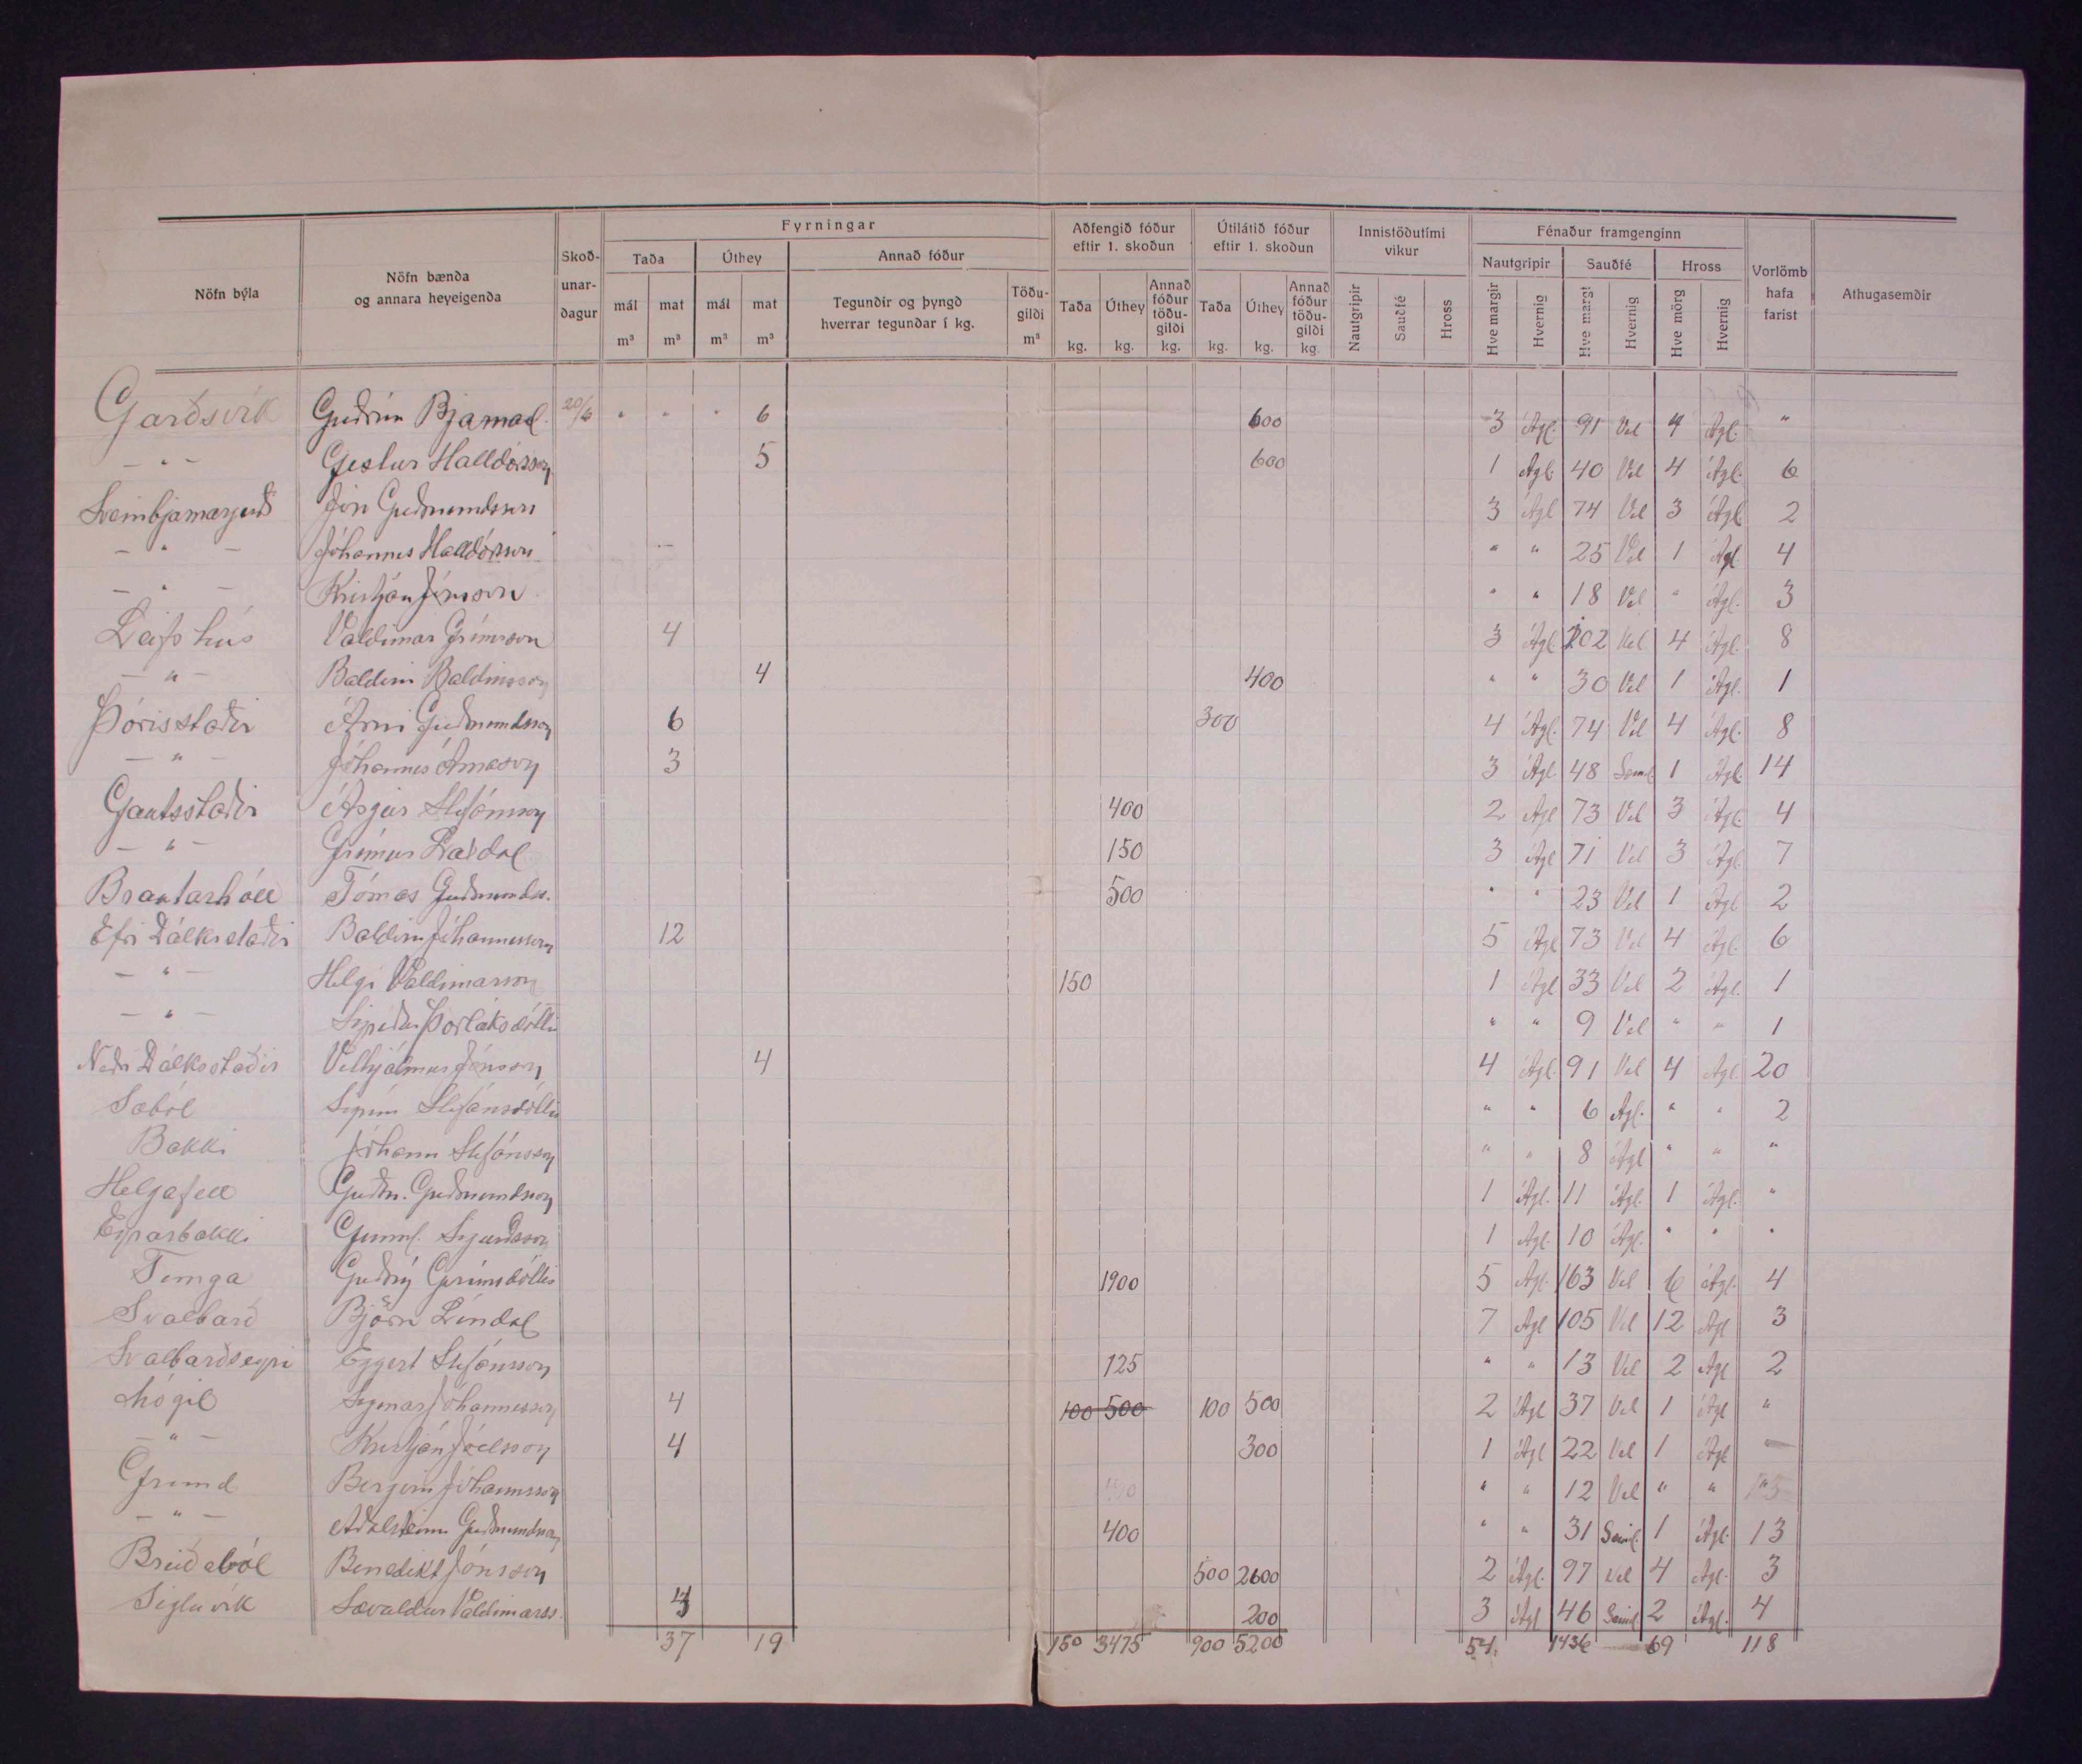 Fyrningar
Aðfengið fóður eftir 1. skoðun
Útilátið fóður eftir 1. skoðun
Innistöðutími vikur
Fénaður framgenginn
Nöfn býla
Nöfn bænda og annara heyeigenda
Skoð-unar-dagur
Taða
Úthey
Annað fóður
Nautgripir
Sauðfé
Hross
Vorlömb hafa farist
Athugasemdir
mál m³
mat m³
mál m³
mat m³
Tegundir og þyngd hverrar tegundar í kg.
Töðu-gildi m³
Taða kg.
Úthey kg.
Annað fóður töðu-gildi kg.
Taða kg.
Úthey kg.
Annað fóður töðu-gildi kg.
Nautgripir
Sauðfé
Hross
Hve margir
Hvernig
Hve margt
Hvernig
Hve mörg
Hvernig
Garðsvík Guðrún Bjarnad. 20/6 " " " 6 600 3 Ágl. 91 Vel 4 Ágl. "
— " — Gestur Halldórsson 5 600 1 Ágl. 40 Vel 4 Ágl. 6
Sveinbjarnargerði Jón Guðmundsson 3 Ágl 74 Vel 3 Ágl. 2
— " — Jóhannes Halldórsson " " 25 Vel 1 Ágl. 4
— " — Kristján Jónsson " " 18 Vel " Ágl. 3
Leifshús Valdimar Grímsson 4 3 Ágl. 102 Vel 4 Ágl. 8
— " — Baldvin Baldvinsson 4 400 " " 30 Vel 1 Ágl. 1
Þórisstaðir Árni Guðmundsson 6 300 4 Ágl. 74 Vel 4 Ágl. 8
— " — Jóhannes Árnason 3 3 Ágl. 48 Sæml. 1 Ágl. 14
Gautsstaðir Ásgeir Stefánsson 400 2 Ágl 73 Vel 3 Ágl. 4
— " — Grímur Laxdal 150 3 Ágl 71 Vel 3 Ágl. 7
Brautarhóll Tómas Guðmundss. 500 " " 23 Vel 1 Ágl 2
Efri Dálksstaðir Baldvin Jóhannesson 12 5 Ágl 73 Vel 4 Ágl. 6
— " — Helgi Valdimarsson 150 1 Ágl 33 Vel 2 Ágl. 1
— " — Sigríður Þorláksdóttir " " 9 Vel " " 1
Neðri Dálksstaðir Vilhjálmur Jónsson 4 4 Ágl. 91 Vel 4 Ágl 20
Sæból Stefánsdóttir " " 6 Ágl. " " 2
Bakki Jóhann Stefánsson " " 8 Ágl " " "
Helgafell Guðm. Guðmundsson 1 Ágl. 11 Ágl. 1 Ágl. "
Eyrarbakki Gunnl. Sigurðsson 1 Ágl. 10 Ágl. " " "
Tunga Guðný Grímsdóttir 1900 5 Ágl. 163 Vel 6 Ágl. 4
Svalbarð Björn Líndal 7 Ágl 105 Vel 12 Ágl 3
Svalbarðseyri Eggert Stefánsson 125 " " 13 Vel 2 Ágl 2
Mógil Sigmar Jóhannesson 4 100 500 100 500 2 Ágl 37 Vel 1 Ágl "
— " — Kristján Jóelsson 4 300 1 Ágl 22 Vel 1 Ágl —
Grund Bergvin Jóhannsson " " 12 Vel " " "
— " — Aðalsteinn Guðmundsson 400 " " 31 Sæml. 1 Ágl. 13
Breiðaból Benedikt Jónsson 500 2600 2 Ágl. 97 Vel 4 Ágl. 3
Sigluvík Sævaldur Valdimarss. 200 3 Ágl 46 Sæml. 2 Ágl. 4
37 19 150 3475 900 5200 54. 1436 69 118